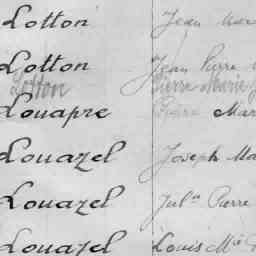 Lotton Jean Mar
Lotton Jean Pierre
Lotton Pierre Marie J
Louapre Pierre Mar
Louazel Joseph Ma
Louazel Jul.n Pierre
Louazel Louis M.ie